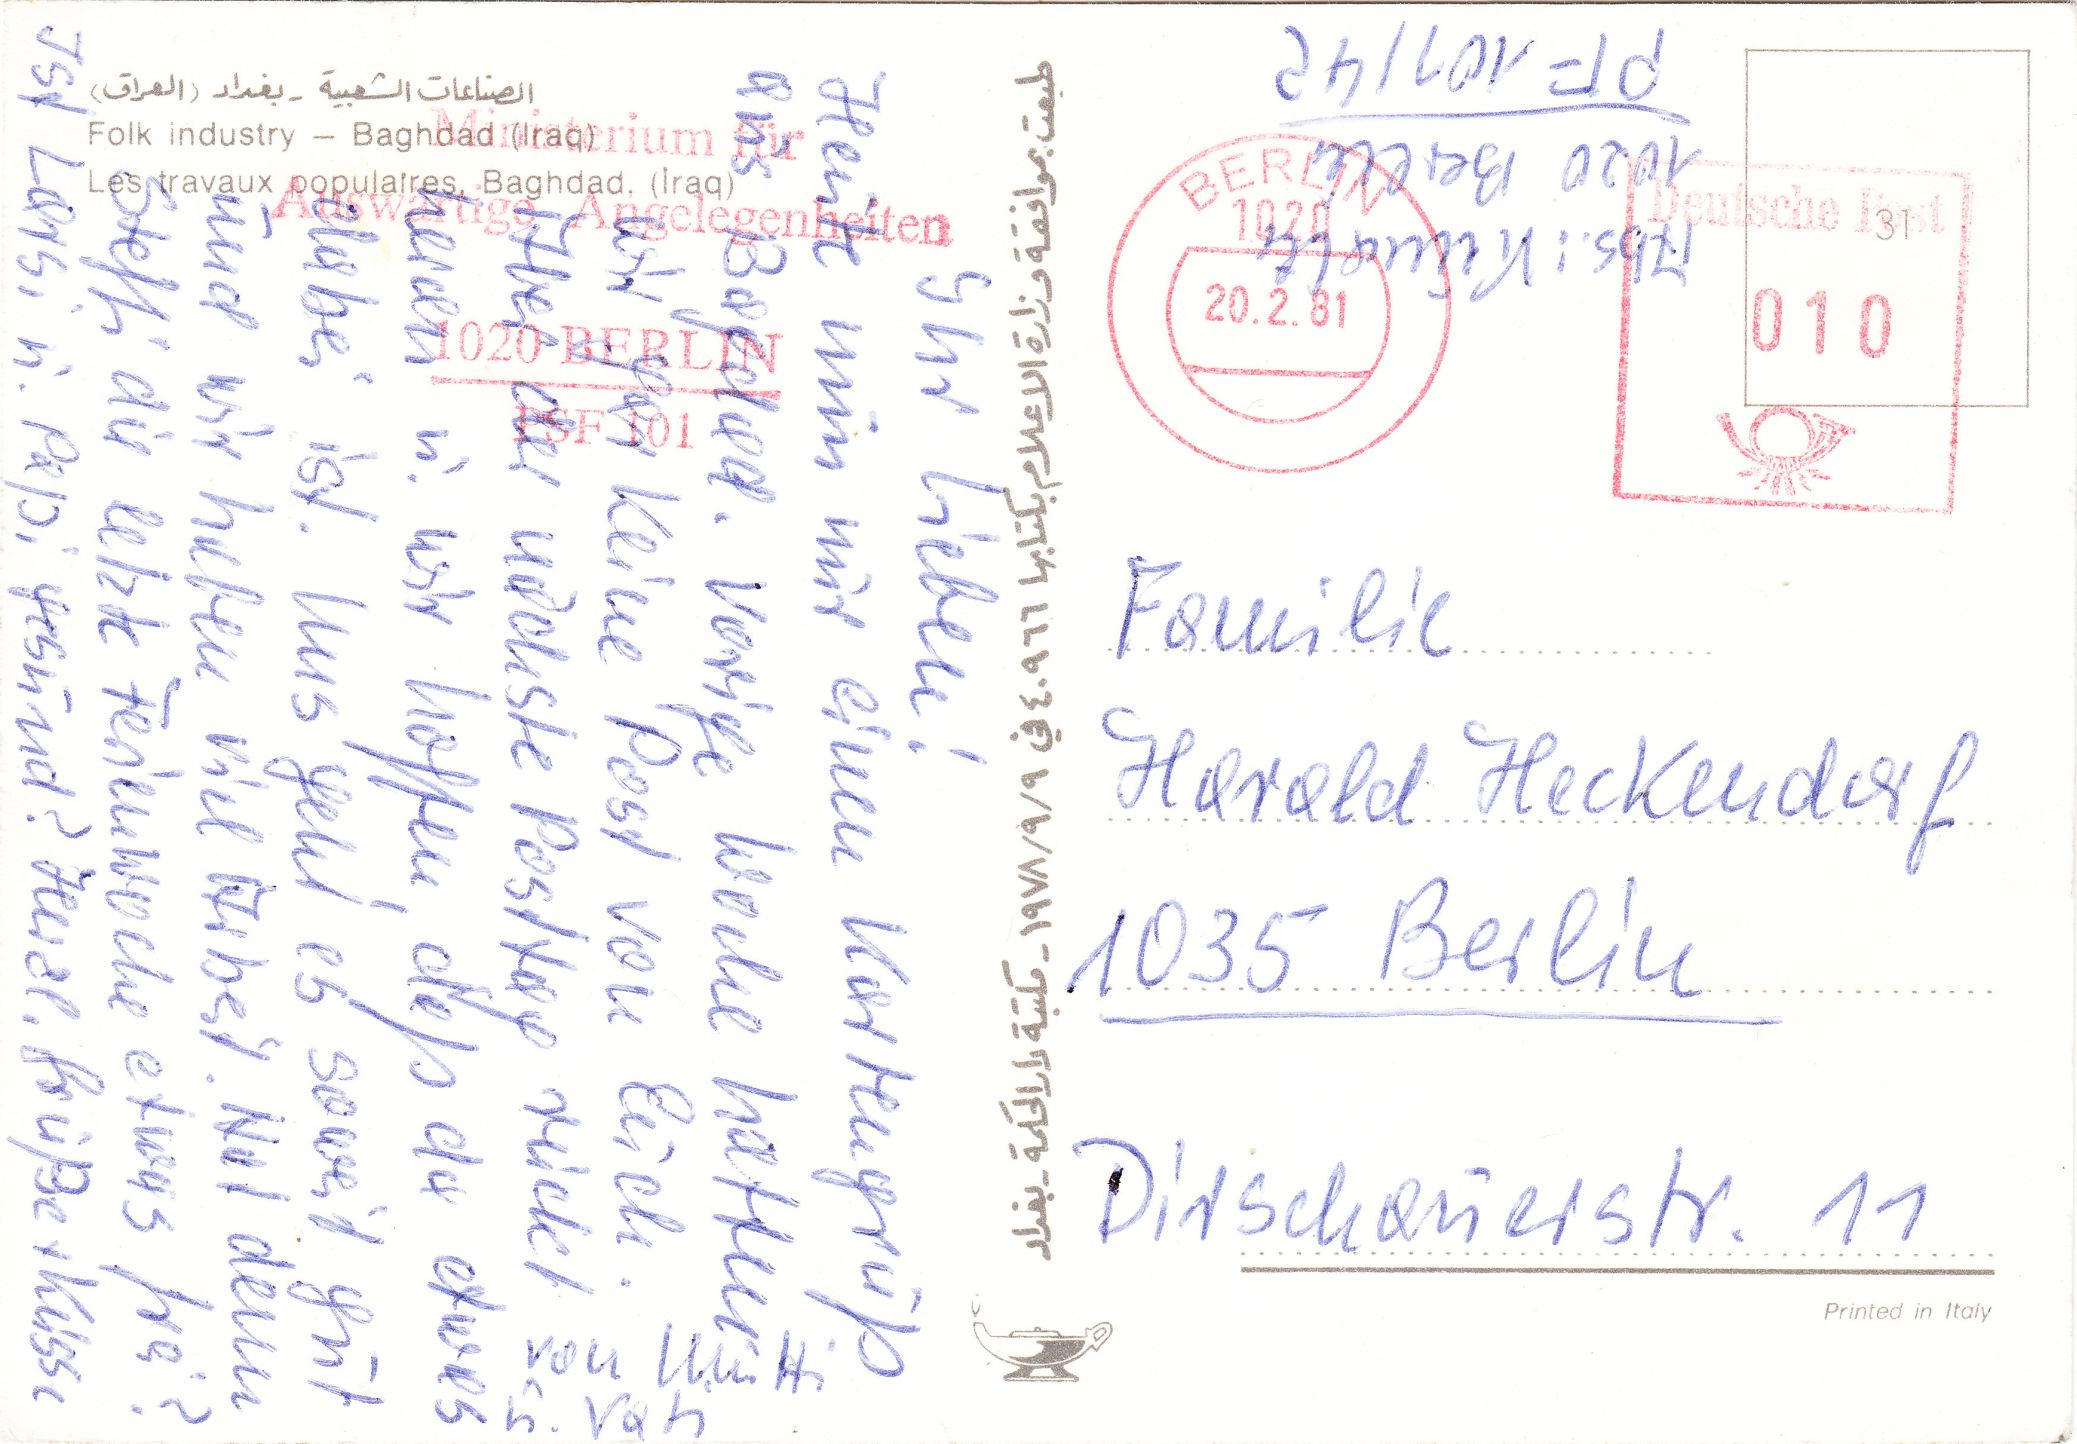 الصناعات الشعبية - بغداد (العراق)
Folk industry – Baghdad (Iraq)
Les travaux populaires, Baghdad. (Iraq)
Ministerium für
Auswärtige Angelegenheiten
1020 BERLIN
PSF 101
Ihr Lieben!
Heute nun nur einen Kartengrüß
aus Bagdad. Vorige Woche hatten
wir gar keine Post von Euch.
Aber der nächste Posttag rückt
heran u. wir hoffen, daß da etwas
dabei ist. Uns geht es soweit gut
und wir haben viel Arbeit. Hat denn
Steffi die letzte Ferienwoche etwas frei?
Ist Lars u. Papi gesund? Herzl. Grüße + Küsse
von Mutti
u. Vati
طبعت بموافقة وزارة الاعلام بكتابها ٤٠٩٦٦ في ١٩٧٨/٩/٩ - مكتبة دار الحكمة - بغداد
Abs.:
1020 Berlin
PF 101/42
BERLIN
1020
20.2.81
Deutsche Post
31
010
Familie
Harald Heckendorf
1035 Berlin
Dirschauerstr. 11
Printed in Italy